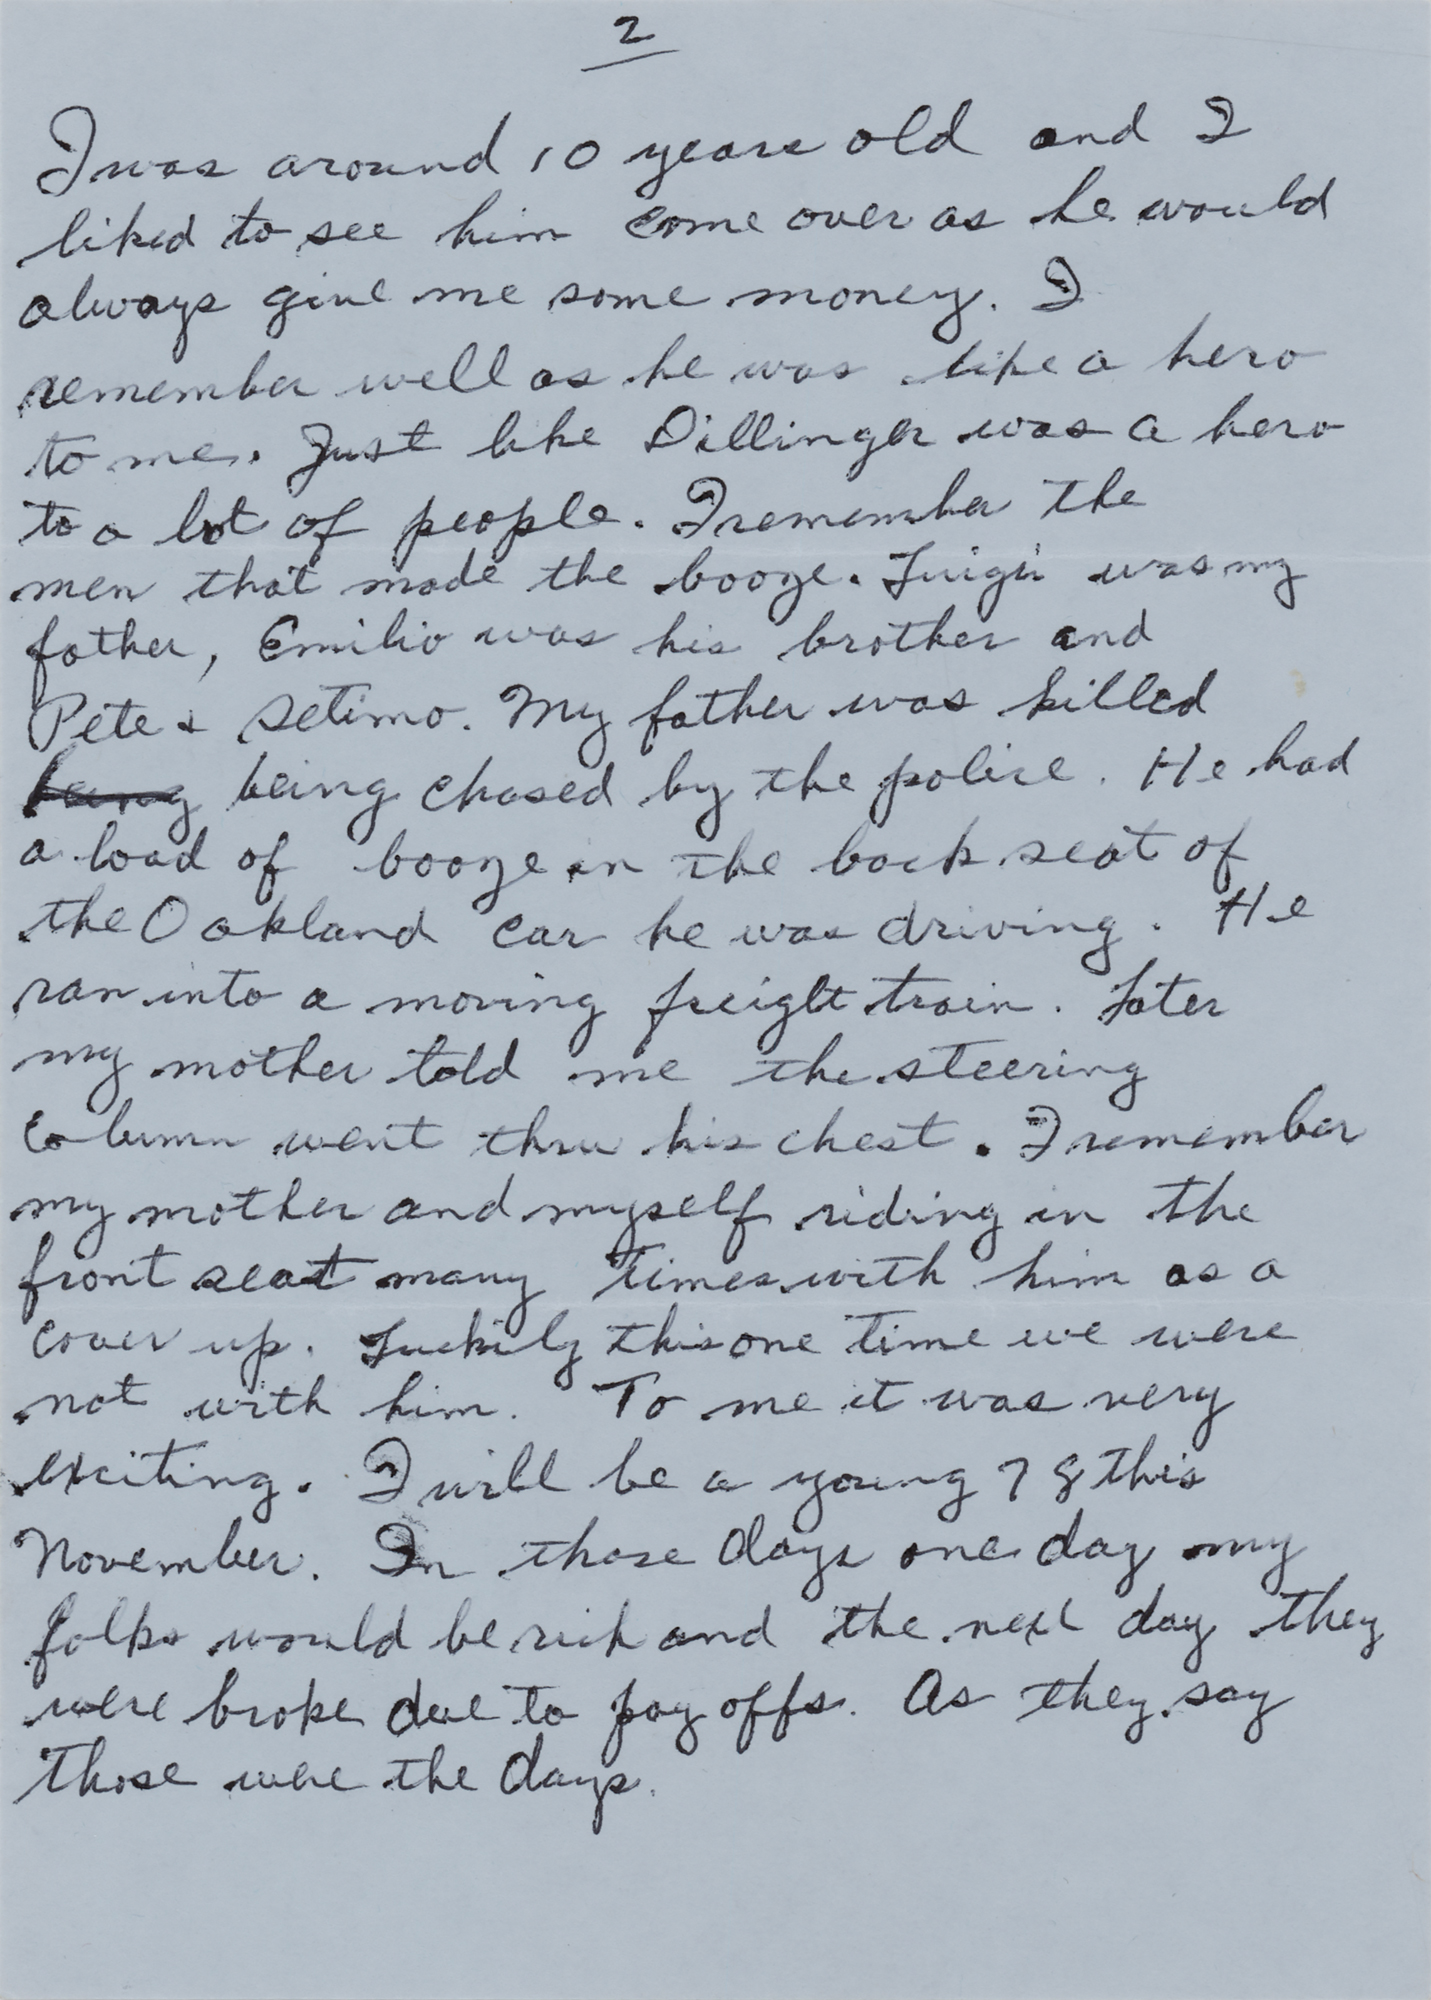 2
I was around 10 years old and I
liked to see him come over as he would
always give me some money. I
remember well as he was like a hero
to me. Just like Dillinger was a hero
to a lot of people. I remember the
men that made the booze. Luigi was my
father, Emilio was his brother and
Pete & Setimo. My father was killed
being being chased by the police. He had
a load of booze in the back seat of
the Oakland car he was driving. He
ran into a moving freight train. Later
my mother told me the steering
column went thru his chest. I remember
my mother and myself riding in the
front seat many times with him as a
cover up. Luckily this one time we were
not with him. To me it was very
exciting. I will be a young 78 this
November. In those days one day my
folks would be rich and the next day they
were broke due to pay offs. As they say
those were the days.